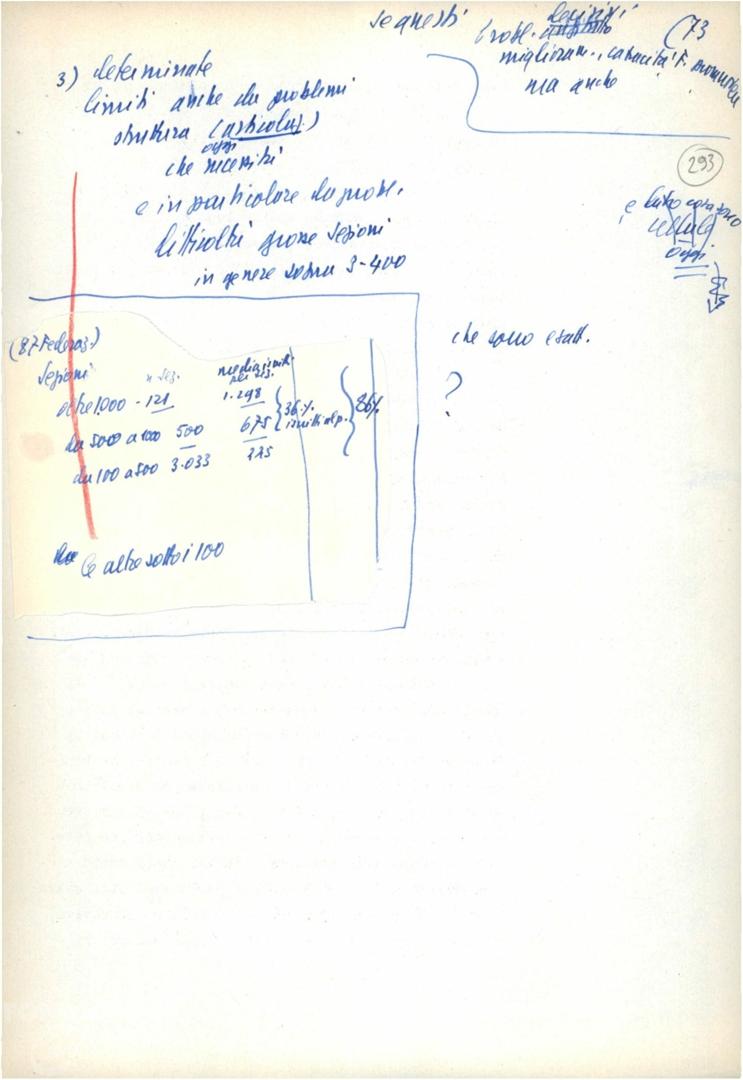 se questi
probl. decisivi
(73
miglioram., capacità F. momento
ma anche
3) determinate
limiti anche da problemi
struttura (articolaz.)
oggi
che necessità
e in particolare da probl.
difficoltà grosse sezioni
in genere sopra 3-400
293
e
cosa sono
cellule
oggi
(87 Federaz.)
Sezioni n. sez. media iscritti per sez.
oltre 1000 - 121 1.298
da 5000 a 1000 500 675
da 100 a 500 3.033 225
36% iscritti al p.
86%
Le altre sotto i 100
che sono esatt.
?